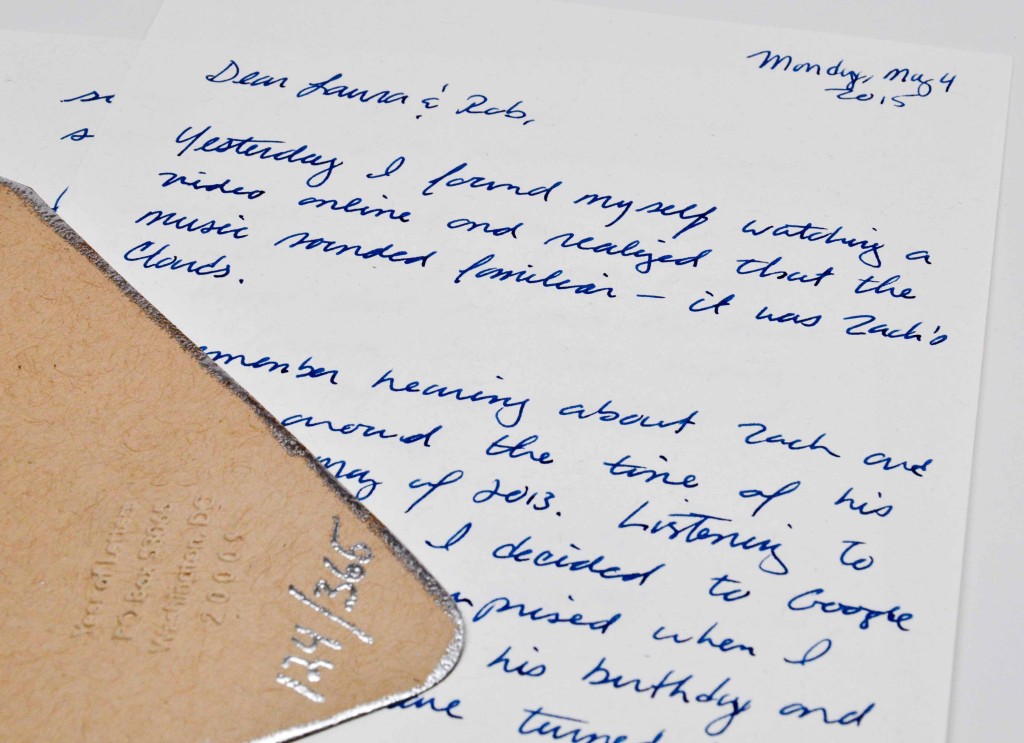 Monday, May 4
2015
Dear Laura & Rob,
Yesterday I found myself watching a
video online and realized that the
music sounded familiar – it was Zach's
Clouds.
emember hearing about Zach and
around the time of his
May of 2013. Listening to
I decided to Google
rprised when I
his birthday and
ave turned
Year of Letters
PO Box
Washington, DC
20005
124/365